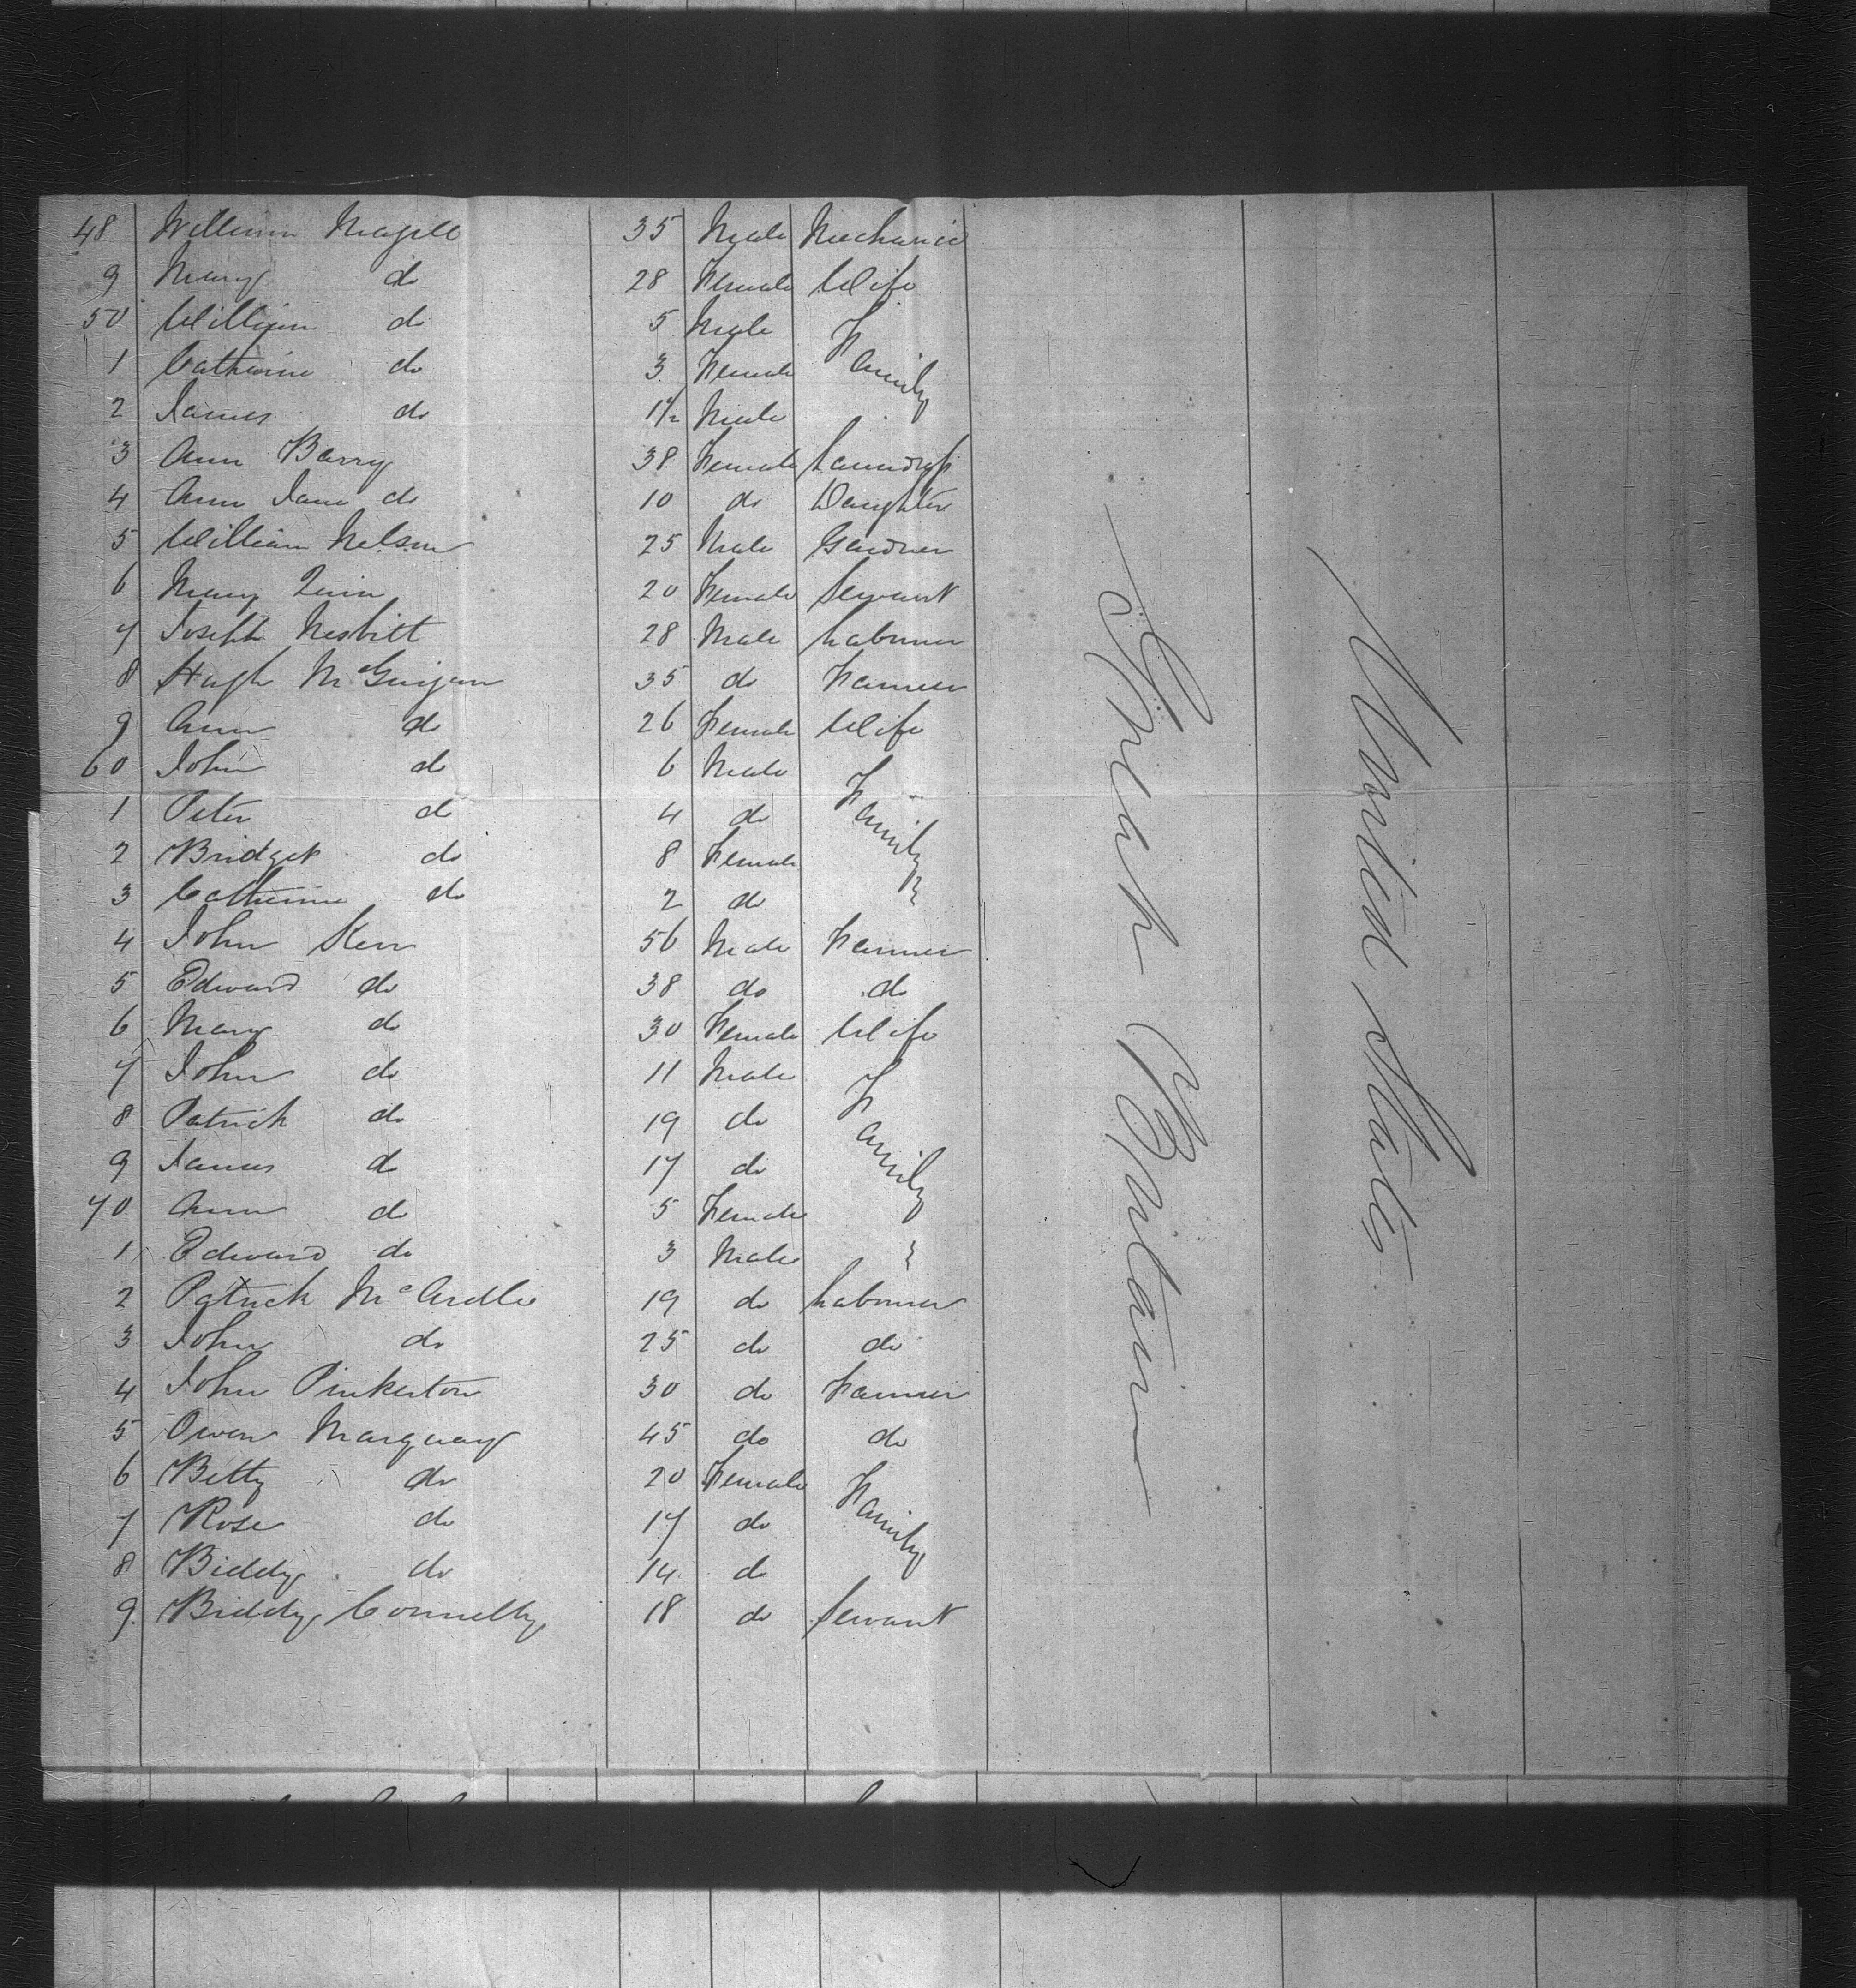 48 William Magill 35 Male Mechanic
9 Mary do 28 Female Wife
50 William do 5 Male
1 Catherine do 3 Female Family
2 James do 1 1/2 Male
3 Ann Barry 38 Female
4 Ann Jane do 10 do Daughter
5 William Nelson 25 Male Gardner
6 Mary Quin 20 Female Servant
7 Joseph Nesbitt 28 Male Labourer
8 Hugh McGuigan 35 do Farmer
9 Ann do 26 Female Wife
60 John do 6 Male
1 Peter do 4 do Family
2 Bridget do 8 Female
3 Catherine do 2 do
4 John Kerr 56 Male Farmer
5 Edward do 38 do do
6 Mary do 30 Female Wife
7 John do 11 Male
8 Patrick do 19 do Family
9 James do 17 do
70 Ann do 5 Female
1 Edward do 3 Male
2 Patrick McArdle 19 do Labourer
3 John do 25 do do
4 John Pinkerton 30 do Farmer
5 Owen Marquay 45 do do
6 Betty do 20 Female
7 Rose do 17 do Family
8 Biddy do 14 do
9 Biddy Connelly 18 do Servant
Great Britain
United States